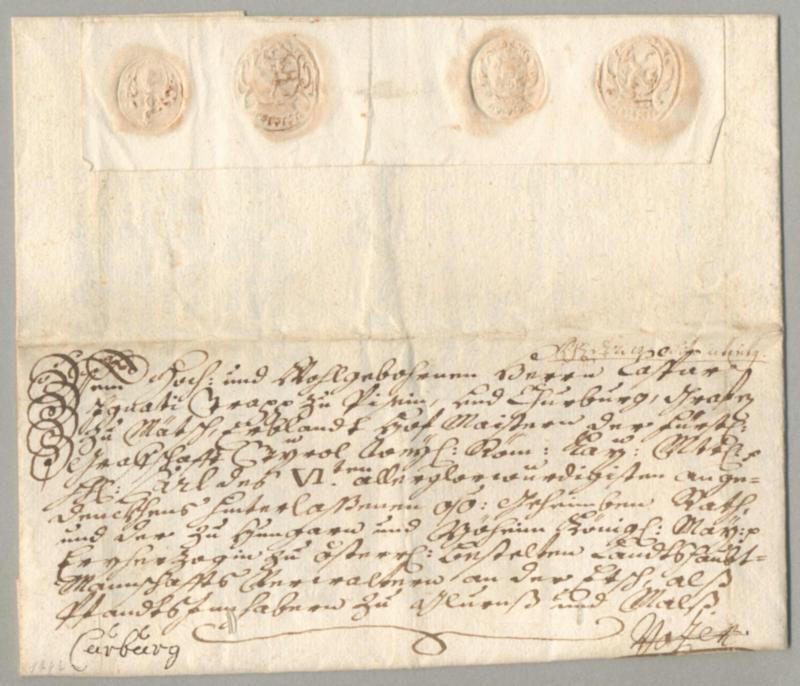 Dem Hoch: und Wohlgebohrnen Herrn Caspar
Ignati Trapp zu Pisein, und Churburg, Grafen
zu Mätsch, Erblandt Hof Maistern der Fürstl:
Grafschafft Tyrol Weyl: Röm: Kay: Mtt:
Carl des VI.ten allerglorwürdigisten ange=
denckhens hinterlaßenen OÖ: Geheimben Rath,
und der zu Hungarn und Boheim Königl: May:
Erzherzogin zu Österr: bestelten Landtshaubt=
Mannschaffts Verwaltern an der Etsch, alß
Pfandts Innhabern zu Glurnß und Malß.
Curburg